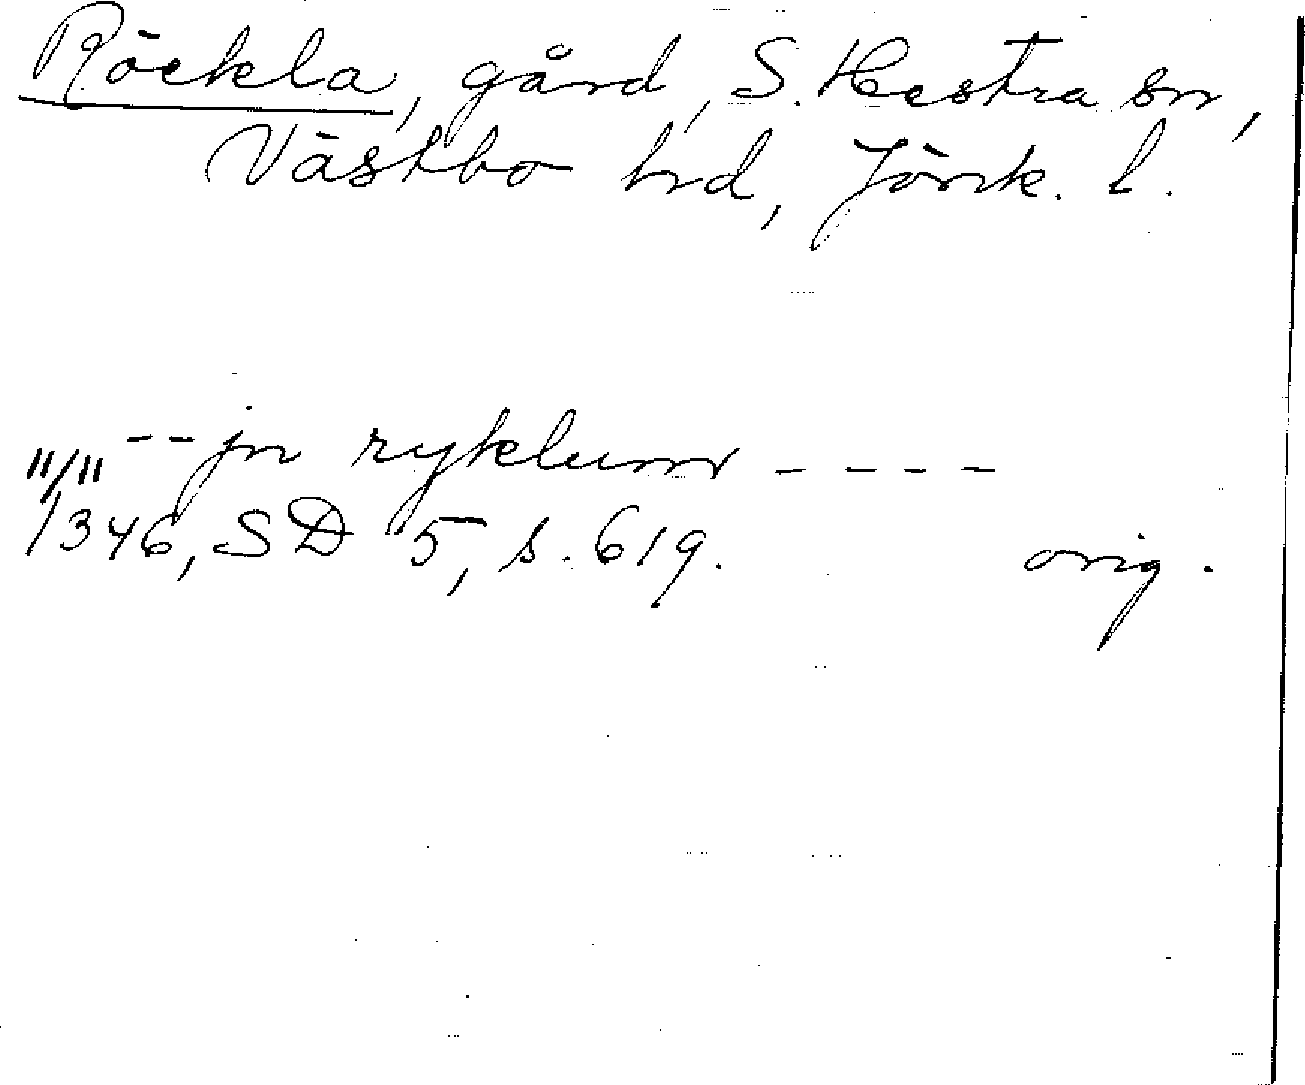 Röckla, gård, S. Hestra sn,
Västbo hd, Jönk. l.
-- jn ryklum ----
11/11 1346, SD 5, s. 619. orig.